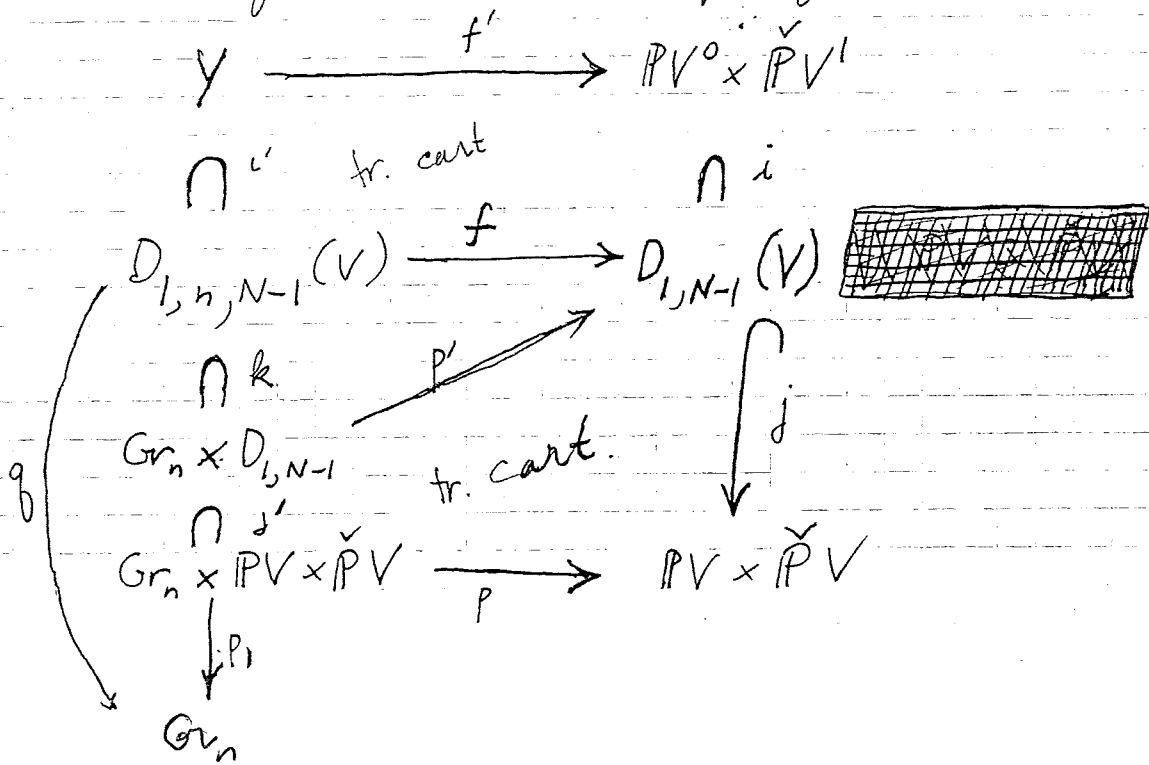 f'
Y ⟶ ℙV⁰ × ℙ̌V¹
∩ i' tr. cart ∩ i
f
D_{1,n,N-1}(V) ⟶ D_{1,N-1}(V)
∩ k. p'
Gr_n × D_{1,N-1} j
q tr. cart.
∩ j'
Gr_n × ℙV × ℙ̌V ⟶ ℙV × ℙ̌V
p
p_1
Gr_n